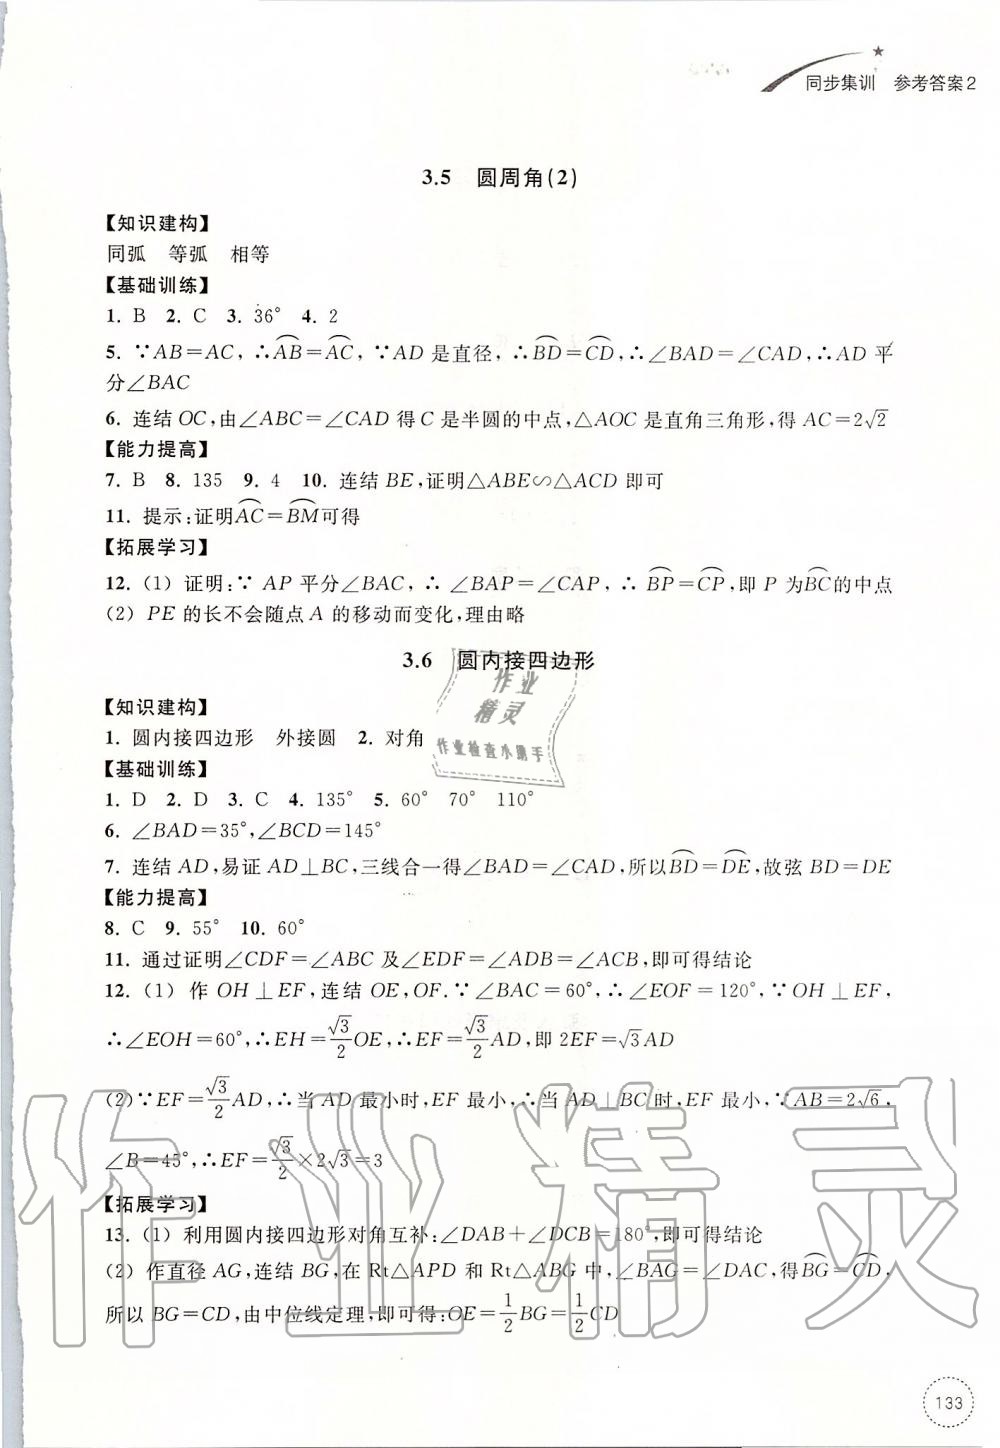 同步集训　参考答案2
3.5　圆周角(2)
【知识建构】
同弧　等弧　相等
【基础训练】
1. B　2. C　3. 36°　4. 2
5. ∵AB=AC, ∴⌒AB=⌒AC, ∵AD 是直径, ∴⌒BD=⌒CD,∴∠BAD=∠CAD,∴AD 平
分∠BAC
6. 连结 OC,由∠ABC=∠CAD 得 C 是半圆的中点,△AOC 是直角三角形,得 AC=2√2
【能力提高】
7. B　8. 135　9. 4　10. 连结 BE,证明△ABE∽△ACD 即可
11. 提示:证明⌒AC=⌒BM可得
【拓展学习】
12. (1) 证明:∵ AP 平分∠BAC, ∴ ∠BAP=∠CAP, ∴ ⌒BP=⌒CP,即 P 为⌒BC的中点
(2) PE 的长不会随点 A 的移动而变化,理由略
3.6　圆内接四边形
【知识建构】
1. 圆内接四边形　外接圆　2. 对角
【基础训练】
1. D　2. D　3. C　4. 135°　5. 60°　70°　110°
6. ∠BAD=35°,∠BCD=145°
7. 连结 AD,易证 AD⊥BC,三线合一得∠BAD=∠CAD,所以⌒BD=⌒DE,故弦 BD=DE
【能力提高】
8. C　9. 55°　10. 60°
11. 通过证明∠CDF=∠ABC 及∠EDF=∠ADB=∠ACB,即可得结论
12. (1) 作 OH⊥EF,连结 OE,OF.∵∠BAC=60°,∴∠EOF=120°,∵OH⊥EF,
∴∠EOH=60°,∴EH=√3/2 OE,∴EF=√3/2 AD,即 2EF=√3AD
(2)∵EF=√3/2 AD,∴当 AD 最小时,EF 最小,∴当 AD⊥BC 时,EF 最小,∵AB=2√6,
∠B=45°,∴EF=√3/2×2√3=3
【拓展学习】
13. (1) 利用圆内接四边形对角互补:∠DAB+∠DCB=180°,即可得结论
(2) 作直径 AG,连结 BG,在 Rt△APD 和 Rt△ABG 中,∠BAG=∠DAC,得⌒BG=⌒CD,
所以 BG=CD,由中位线定理,即可得:OE=1/2 BG=1/2 CD
133
作业
精灵
作业检查小助手
作业精灵